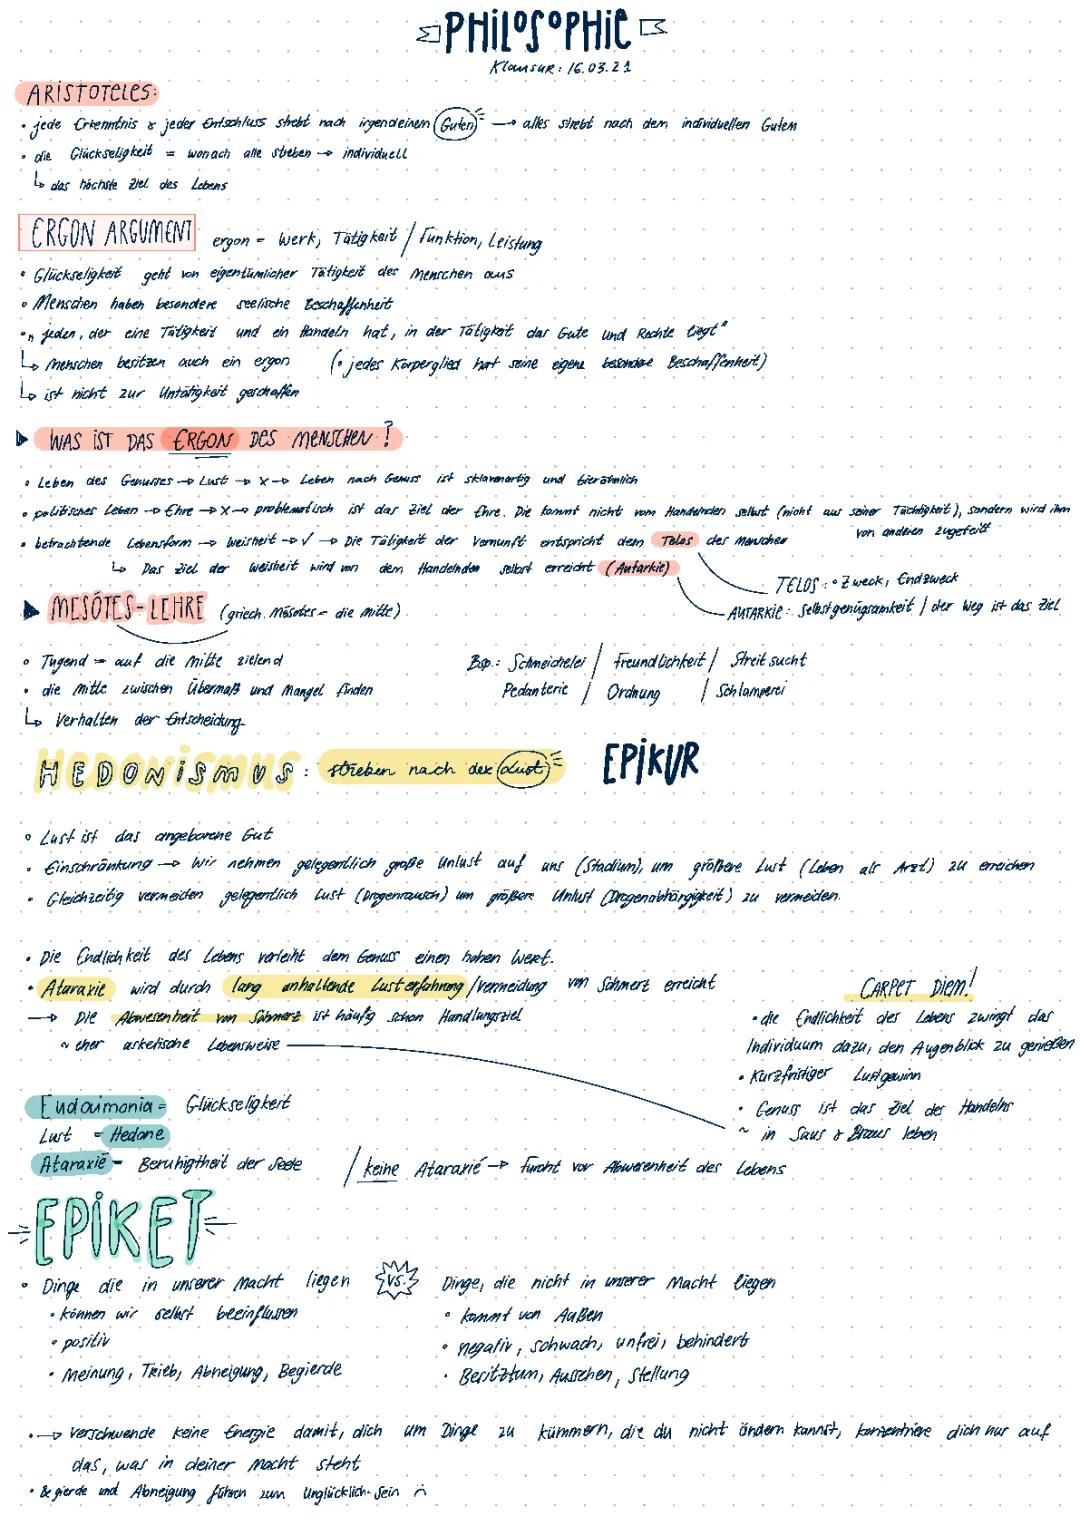 PHILOSOPHIE
Klausur: 16.03.21
ARISTOTELES:
• jede Erkenntnis & jeder Entschluss strebt nach irgendeinem Guten → alles strebt nach dem individuellen Gutem
• die Glückseligkeit = wonach alle streben → individuell
↳ das höchste Ziel des Lebens
ERGON ARGUMENT ergon = Werk, Tätigkeit / Funktion, Leistung
• Glückseligkeit geht von eigentümlicher Tätigkeit des Menschen aus
• Menschen haben besondere seelische Beschaffenheit
• „jeden, der eine Tätigkeit und ein Handeln hat, in der Tätigkeit das Gute und Rechte liegt"
↳ Menschen besitzen auch ein ergon (• jedes Körperglied hat seine eigene besondere Beschaffenheit)
↳ ist nicht zur Untätigkeit geschaffen
▶ WAS IST DAS ERGON DES MENSCHEN?
• Leben des Genusses → Lust → X → Leben nach Genuss ist sklavenartig und tierähnlich
• politisches Leben → Ehre → X → problematisch ist das Ziel der Ehre. Die kommt nicht vom Handelnden selbst (nicht aus seiner Tüchtigkeit), sondern wird ihm von anderen zugeteilt
• betrachtende Lebensform → Weisheit → ✓ → Die Tätigkeit der Vernunft entspricht dem Telos des Menschen
↳ Das Ziel der Weisheit wird von dem Handelnden selbst erreicht (Autarkie)
TELOS: • Zweck, Endzweck
AUTARKIE: Selbstgenügsamkeit / der Weg ist das Ziel
▶ MESÓTES-LEHRE (griech. Mésotes = die Mitte)
• Tugend = auf die Mitte zielend
• die Mitte zwischen Übermaß und Mangel finden
↳ Verhalten der Entscheidung
Bsp.: Schmeichelei / Freundlichkeit / Streitsucht
Pedanterie / Ordnung / Schlamperei
HEDONISMUS: streben nach der Lust EPIKUR
• Lust ist das angeborene Gut
• Einschränkung → Wir nehmen gelegentlich große Unlust auf uns (Stadium), um größere Lust (Leben als Arzt) zu erreichen
• Gleichzeitig vermeiden gelegentlich Lust (Drogenrausch) um größere Unlust (Drogenabhängigkeit) zu vermeiden.
• Die Endlichkeit des Lebens verleiht dem Genuss einen hohen Wert.
• Ataraxie wird durch lang anhaltende Lusterfahrung / Vermeidung von Schmerz erreicht
→ Die Abwesenheit von Schmerz ist häufig schon Handlungsziel
~ eher asketische Lebensweise
CARPET DIEM!
• die Endlichkeit des Lebens zwingt das
Individuum dazu, den Augenblick zu genießen
• Kurzfristiger Lustgewinn
• Genuss ist das Ziel des Handelns
~ in Saus & Braus leben
Eudaimonia = Glückseligkeit
Lust = Hedone
Ataraxie = Beruhigtheit der Seele / keine Ataraxie → Furcht vor Abwesenheit des Lebens
EPIKET
• Dinge die in unserer Macht liegen vs. Dinge, die nicht in unserer Macht liegen
• können wir selbst beeinflussen
• positiv
• Meinung, Trieb, Abneigung, Begierde
• kommt von Außen
• negativ, schwach, unfrei, behindert
• Besitztum, Aussehen, Stellung
• → Verschwende keine Energie damit, dich um Dinge zu kümmern, die du nicht ändern kannst, konzentriere dich nur auf
das, was in deiner Macht steht
• Begierde und Abneigung führen zum Unglücklich-Sein